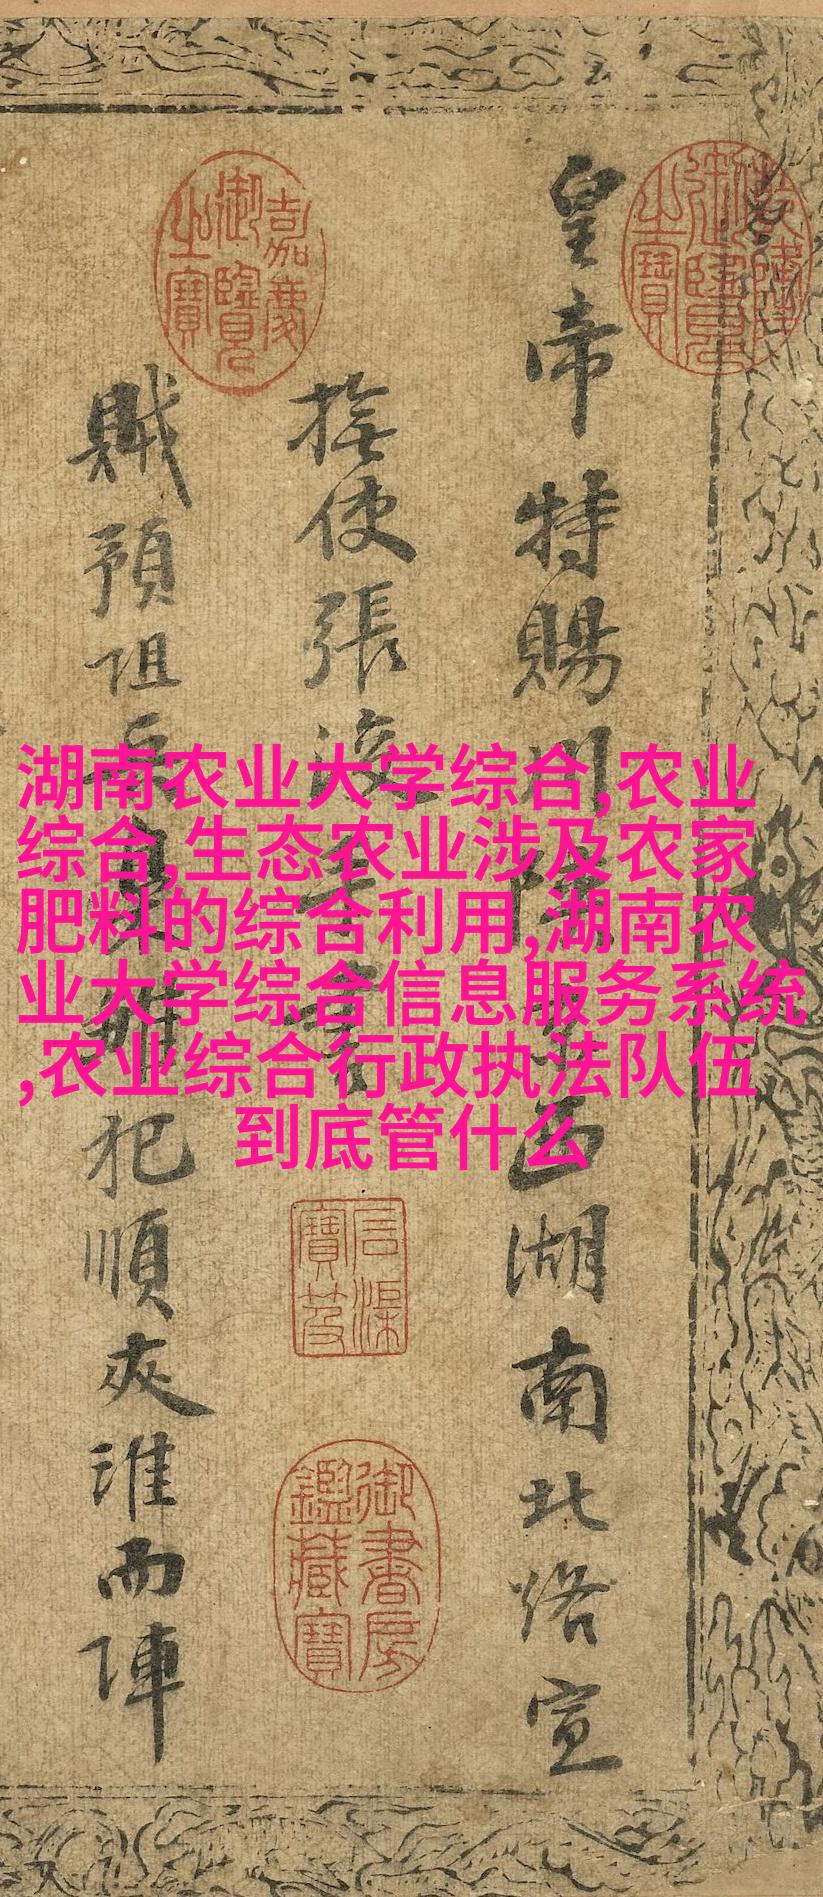 湖南农业大学综合,农业
综合,生态农业涉及农家
肥料的综合利用,湖南农
业大学综合信息服务系统
,农业综合行政执法队伍
到底管什么
皇帝特賜川陝西湖南北路宣
撫使張浚
賊預阻兵犯順夾淮而陣
乾隆御覽之寶
嘉慶御覽之寶
石渠寶笈
御書房鑑藏寶